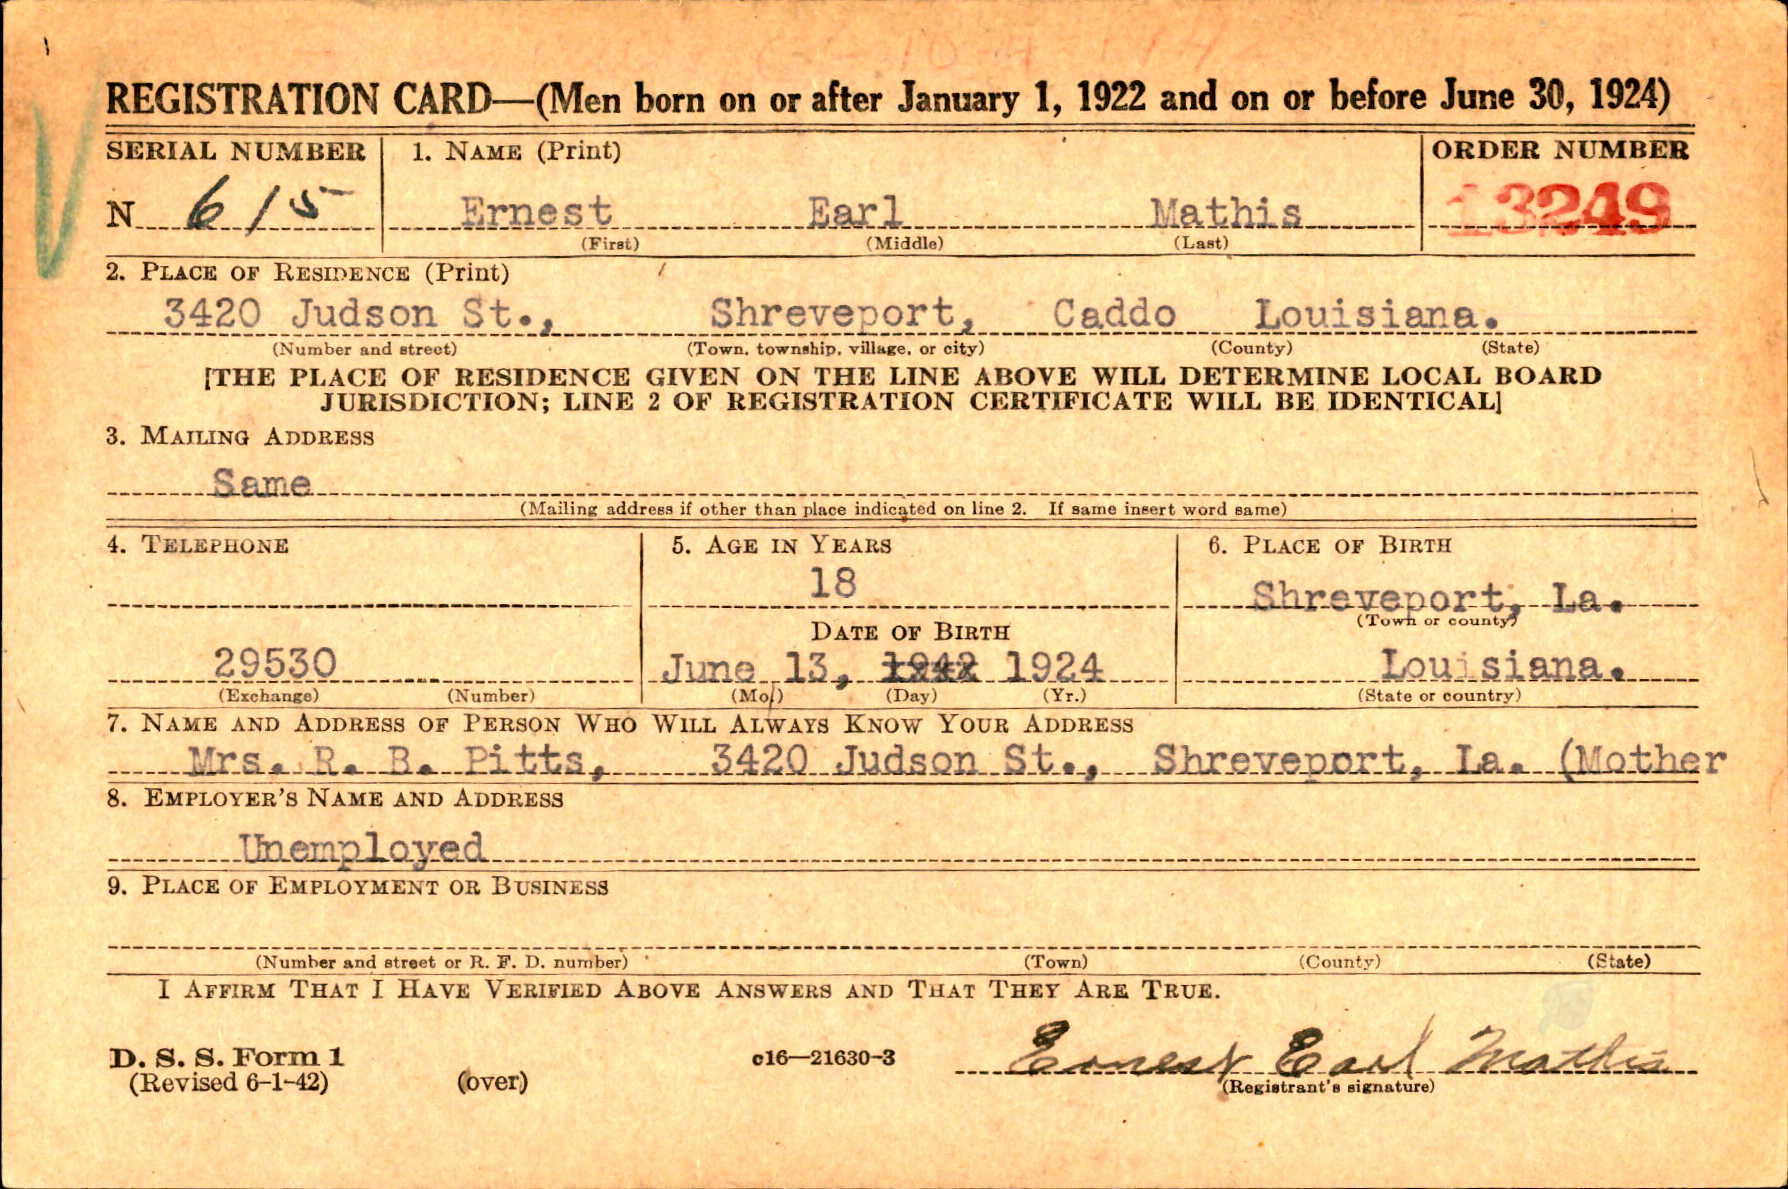 REGISTRATION CARD—(Men born on or after January 1, 1922 and on or before June 30, 1924)
SERIAL NUMBER
1. NAME (Print)
ORDER NUMBER
N 615
Ernest Earl Mathis
13249
(First) (Middle) (Last)
2. PLACE OF RESIDENCE (Print)
3420 Judson St., Shreveport, Caddo Louisiana.
(Number and street) (Town, township, village, or city) (County) (State)
[THE PLACE OF RESIDENCE GIVEN ON THE LINE ABOVE WILL DETERMINE LOCAL BOARD
JURISDICTION; LINE 2 OF REGISTRATION CERTIFICATE WILL BE IDENTICAL]
3. MAILING ADDRESS
Same
(Mailing address if other than place indicated on line 2. If same insert word same)
4. TELEPHONE
29530
(Exchange) (Number)
5. AGE IN YEARS
18
DATE OF BIRTH
June 13, 1942 1924
(Mo.) (Day) (Yr.)
6. PLACE OF BIRTH
Shreveport, La.
(Town or county)
Louisiana.
(State or country)
7. NAME AND ADDRESS OF PERSON WHO WILL ALWAYS KNOW YOUR ADDRESS
Mrs. R. B. Pitts, 3420 Judson St., Shreveport, La. (Mother
8. EMPLOYER'S NAME AND ADDRESS
Unemployed
9. PLACE OF EMPLOYMENT OR BUSINESS
(Number and street or R. F. D. number) (Town) (County) (State)
I AFFIRM THAT I HAVE VERIFIED ABOVE ANSWERS AND THAT THEY ARE TRUE.
D. S. S. Form 1
(Revised 6-1-42) (over)
c16—21630-3
Ernest Earl Mathis
(Registrant's signature)